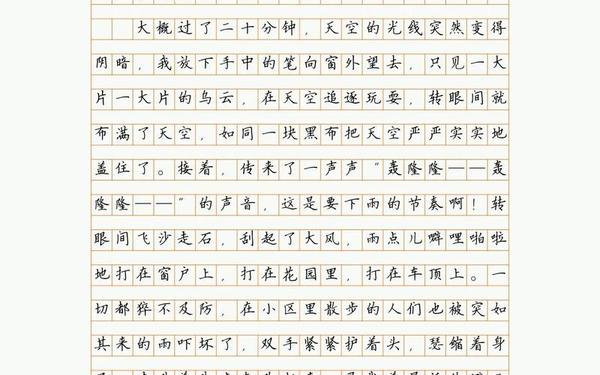 大概过了二十分钟，天空的光线突然变得
阴暗，我放下手中的笔向窗外望去，只见一大
片一大片的乌云，在天空追逐玩耍，转眼间就
布满了天空，如同一块黑布把天空严严实实地
盖住了。接着，传来了一声声“轰隆隆——轰
隆隆——”的声音，这是要下雨的节奏啊！转
眼间飞沙走石，刮起了大风，雨点儿噼哩啪啦
地打在窗户上，打在花园里，打在车顶上。一
切都猝不及防，在小区里散步的人们也被突如
其来的雨吓坏了，双手紧紧护着头，瑟缩着身